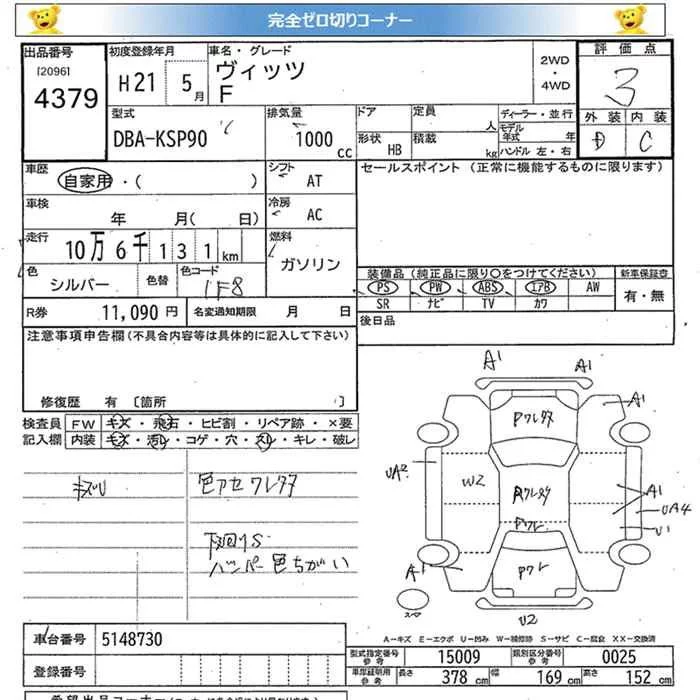 完全ゼロ切りコーナー
出品番号 初度登録年月 車名・グレード 2WD・4WD 評価点
[2096] 4379 H21 5月 ヴィッツ F 3
型式 排気量 ドア 定員 人 ディーラー・並行 外装 内装
DBA-KSP90 1000cc 形状 HB 積載 kg モデル年式 年 ハンドル 左・右 D C
車歴 自家用・( ) シフト AT セールスポイント (正常に機能するものに限ります)
車検 年 月( 日) 冷房 AC
走行 10万6千131km 燃料 ガソリン
色 シルバー 色替 色コード 1F8 装備品(純正品に限り○をつけてください) 新車保証書
PS PW ABS エアB AW 有・無
R券 11,090円 名変通知期限 月 日 SR ナビ TV カワ
注意事項申告欄(不具合内容等は具体的に記入して下さい) 後日品
修復歴 有 [箇所 ]
検査員 FW キズ・飛石・ヒビ割・リペア跡・×要
記入欄 内装 キズ・汚レ・コゲ・穴・スレ・キレ・破レ
キズU 色アセ ワレタタ
下回りS
バンパー色ちがい
A1 A1
A1
Pワレタタ
UA2 W2 Aワレタタ A1
UA4
Pワレ U1
A1 Pワレ
スペア U2
A-キズ E-エクボ U-凹み W-補修跡 S-サビ C-腐食 XX-交換済
車台番号 5148730 型式指定番号 参考 15009 類別区分番号 参考 0025
登録番号 車庫証明用 参考 長さ 378cm 幅 169cm 高さ 152cm